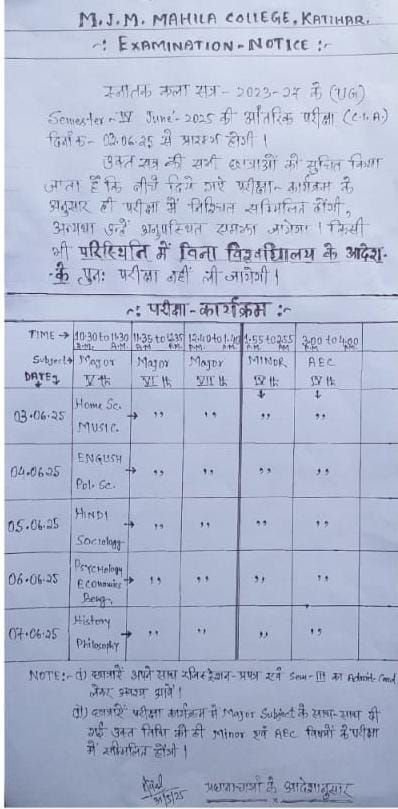 M.J.M. MAHILA COLLEGE, KATIHAR.
~: EXAMINATION-NOTICE :~
स्नातक कला सत्र - 2023-27 के (UG)
Semester-IV June-2025 की आंतरिक परीक्षा (C.I.A.)
दिनांक- 03.06.25 से प्रारम्भ होगी ।
उक्त सत्र की सभी छात्राओं को सूचित किया
जाता है कि नीचे दिये गए परीक्षा-कार्यक्रम के
अनुसार ही परीक्षा में निश्चित सम्मिलित होंगी,
अन्यथा उन्हें अनुपस्थित समझा जायेगा । किसी
भी परिस्थिति में बिना विश्वविद्यालय के आदेश-
-के पुनः परीक्षा नहीं ली जायेगी ।
~: परीक्षा-कार्यक्रम :~
TIME → 10:30 to 11:30 A.M. 11:35 to 12:35 P.M. 12:40 to 1:40 P.M. 1:55 to 2:55 P.M. 3:00 to 4:00 P.M.
Subject→ Major Major Major MINOR AEC
DATE↓ V th VI th VII th IV th IV th
03.06.25 Home Sc. → ,, ,, ,, ,,
MUSIC.
04.06.25 ENGLISH → ,, ,, ,, ,,
Pol. Sc.
05.06.25 HINDI → ,, ,, ,, ,,
Sociology
06.06.25 Psychology → ,, ,, ,, ,,
Economics
Beng.
07.06.25 History → ,, ,, ,, ,,
Philosophy
NOTE:- (i) छात्राएँ अपने साथ रजिस्ट्रेशन-प्रपत्र एवं Sem-III का Admit-Card
लेकर अवश्य आवें ।
(ii) छात्राएँ परीक्षा कार्यक्रम में Major Subject के साथ-साथ दी
गई उक्त तिथि को ही Minor एवं AEC विषयों के परीक्षा
में सम्मिलित होंगी ।
31/5/25 प्रधानाचार्या के आदेशानुसार